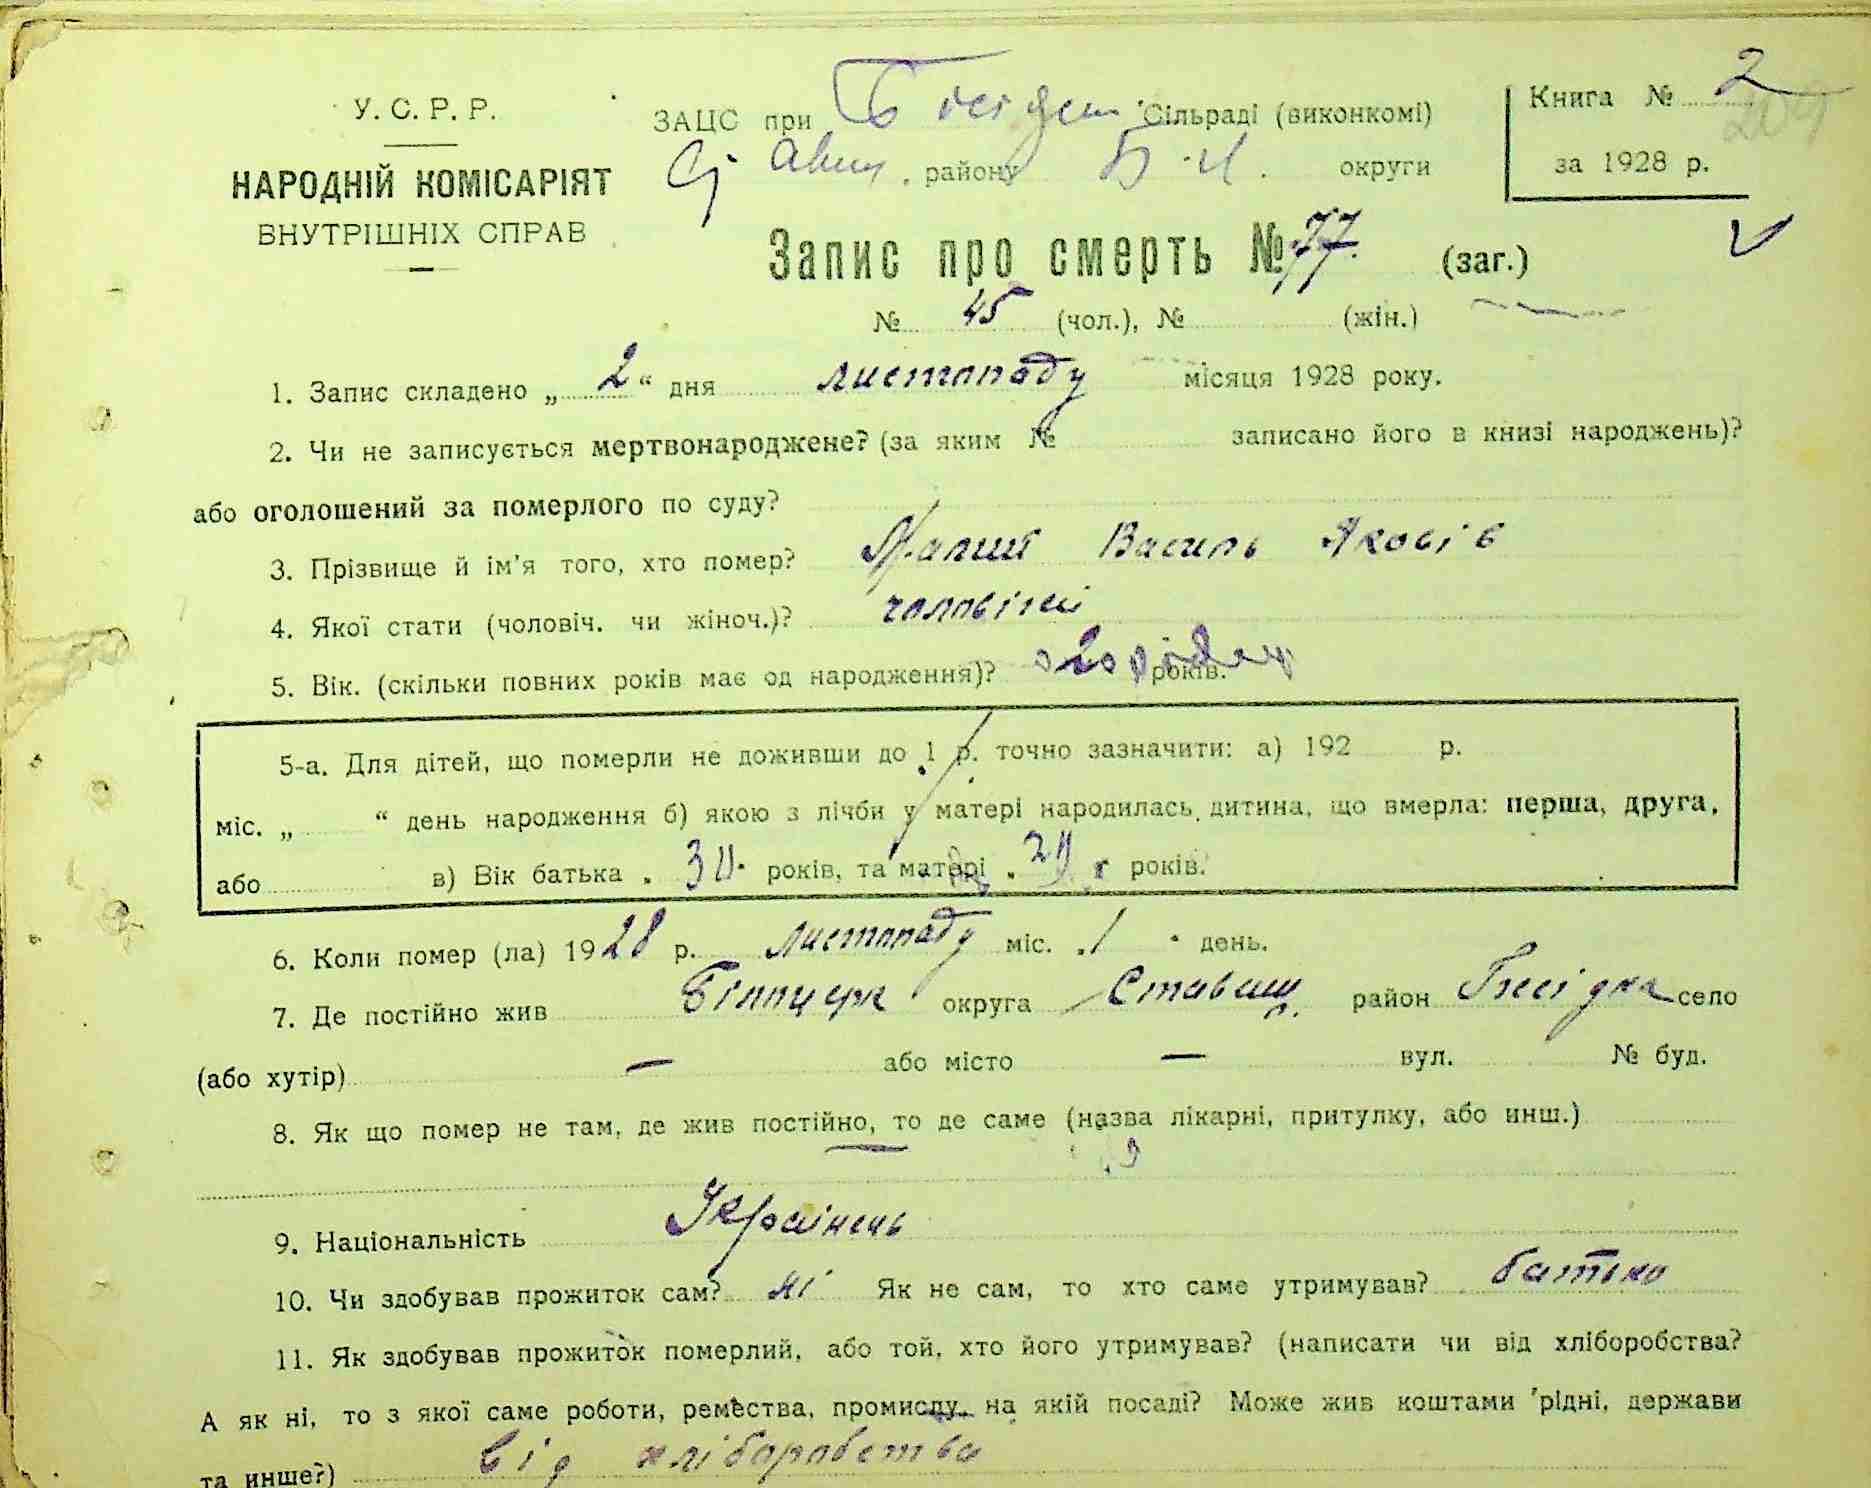 У. С. Р. Р.
НАРОДНІЙ КОМІСАРІЯТ
ВНУТРІШНІХ СПРАВ
ЗАЦС при Сільраді (виконкомі)
району Б.Ц. округи
Книга № 2
204
за 1928 р.
Запис про смерть № 77. (заг.)
№ 45 (чол.), № (жін.)
1. Запис складено „ 2 “ дня листопаду місяця 1928 року.
2. Чи не записується мертвонароджене? (за яким № записано його в книзі народжень)?
або оголошений за померлого по суду?
3. Прізвище й ім'я того, хто помер? Малий Василь Яковів
4. Якої стати (чоловіч. чи жіноч.)? чоловічої
5. Вік. (скільки повних років має од народження)? років.
5-а. Для дітей, що померли не доживши до 1 р. точно зазначити: а) 192 р.
міс. „ “ день народження б) якою з лічби у матері народилась дитина, що вмерла: перша, друга,
або в) Вік батька років, та матері років.
6. Коли помер (ла) 1928 р. листопаду міс. 1 день.
7. Де постійно жив Білоцерк округа Ставищ. район Бесідка село
(або хутір) — або місто — вул. № буд.
8. Як що помер не там, де жив постійно, то де саме (назва лікарні, притулку, або инш.)
9. Національність Українець
10. Чи здобував прожиток сам? ні Як не сам, то хто саме утримував? батько
11. Як здобував прожиток померлий, або той, хто його утримував? (написати чи від хліборобства?
А як ні, то з якої саме роботи, ремества, промислу, на якій посаді? Може жив коштами рідні, держави
та инше?) від хліборобства